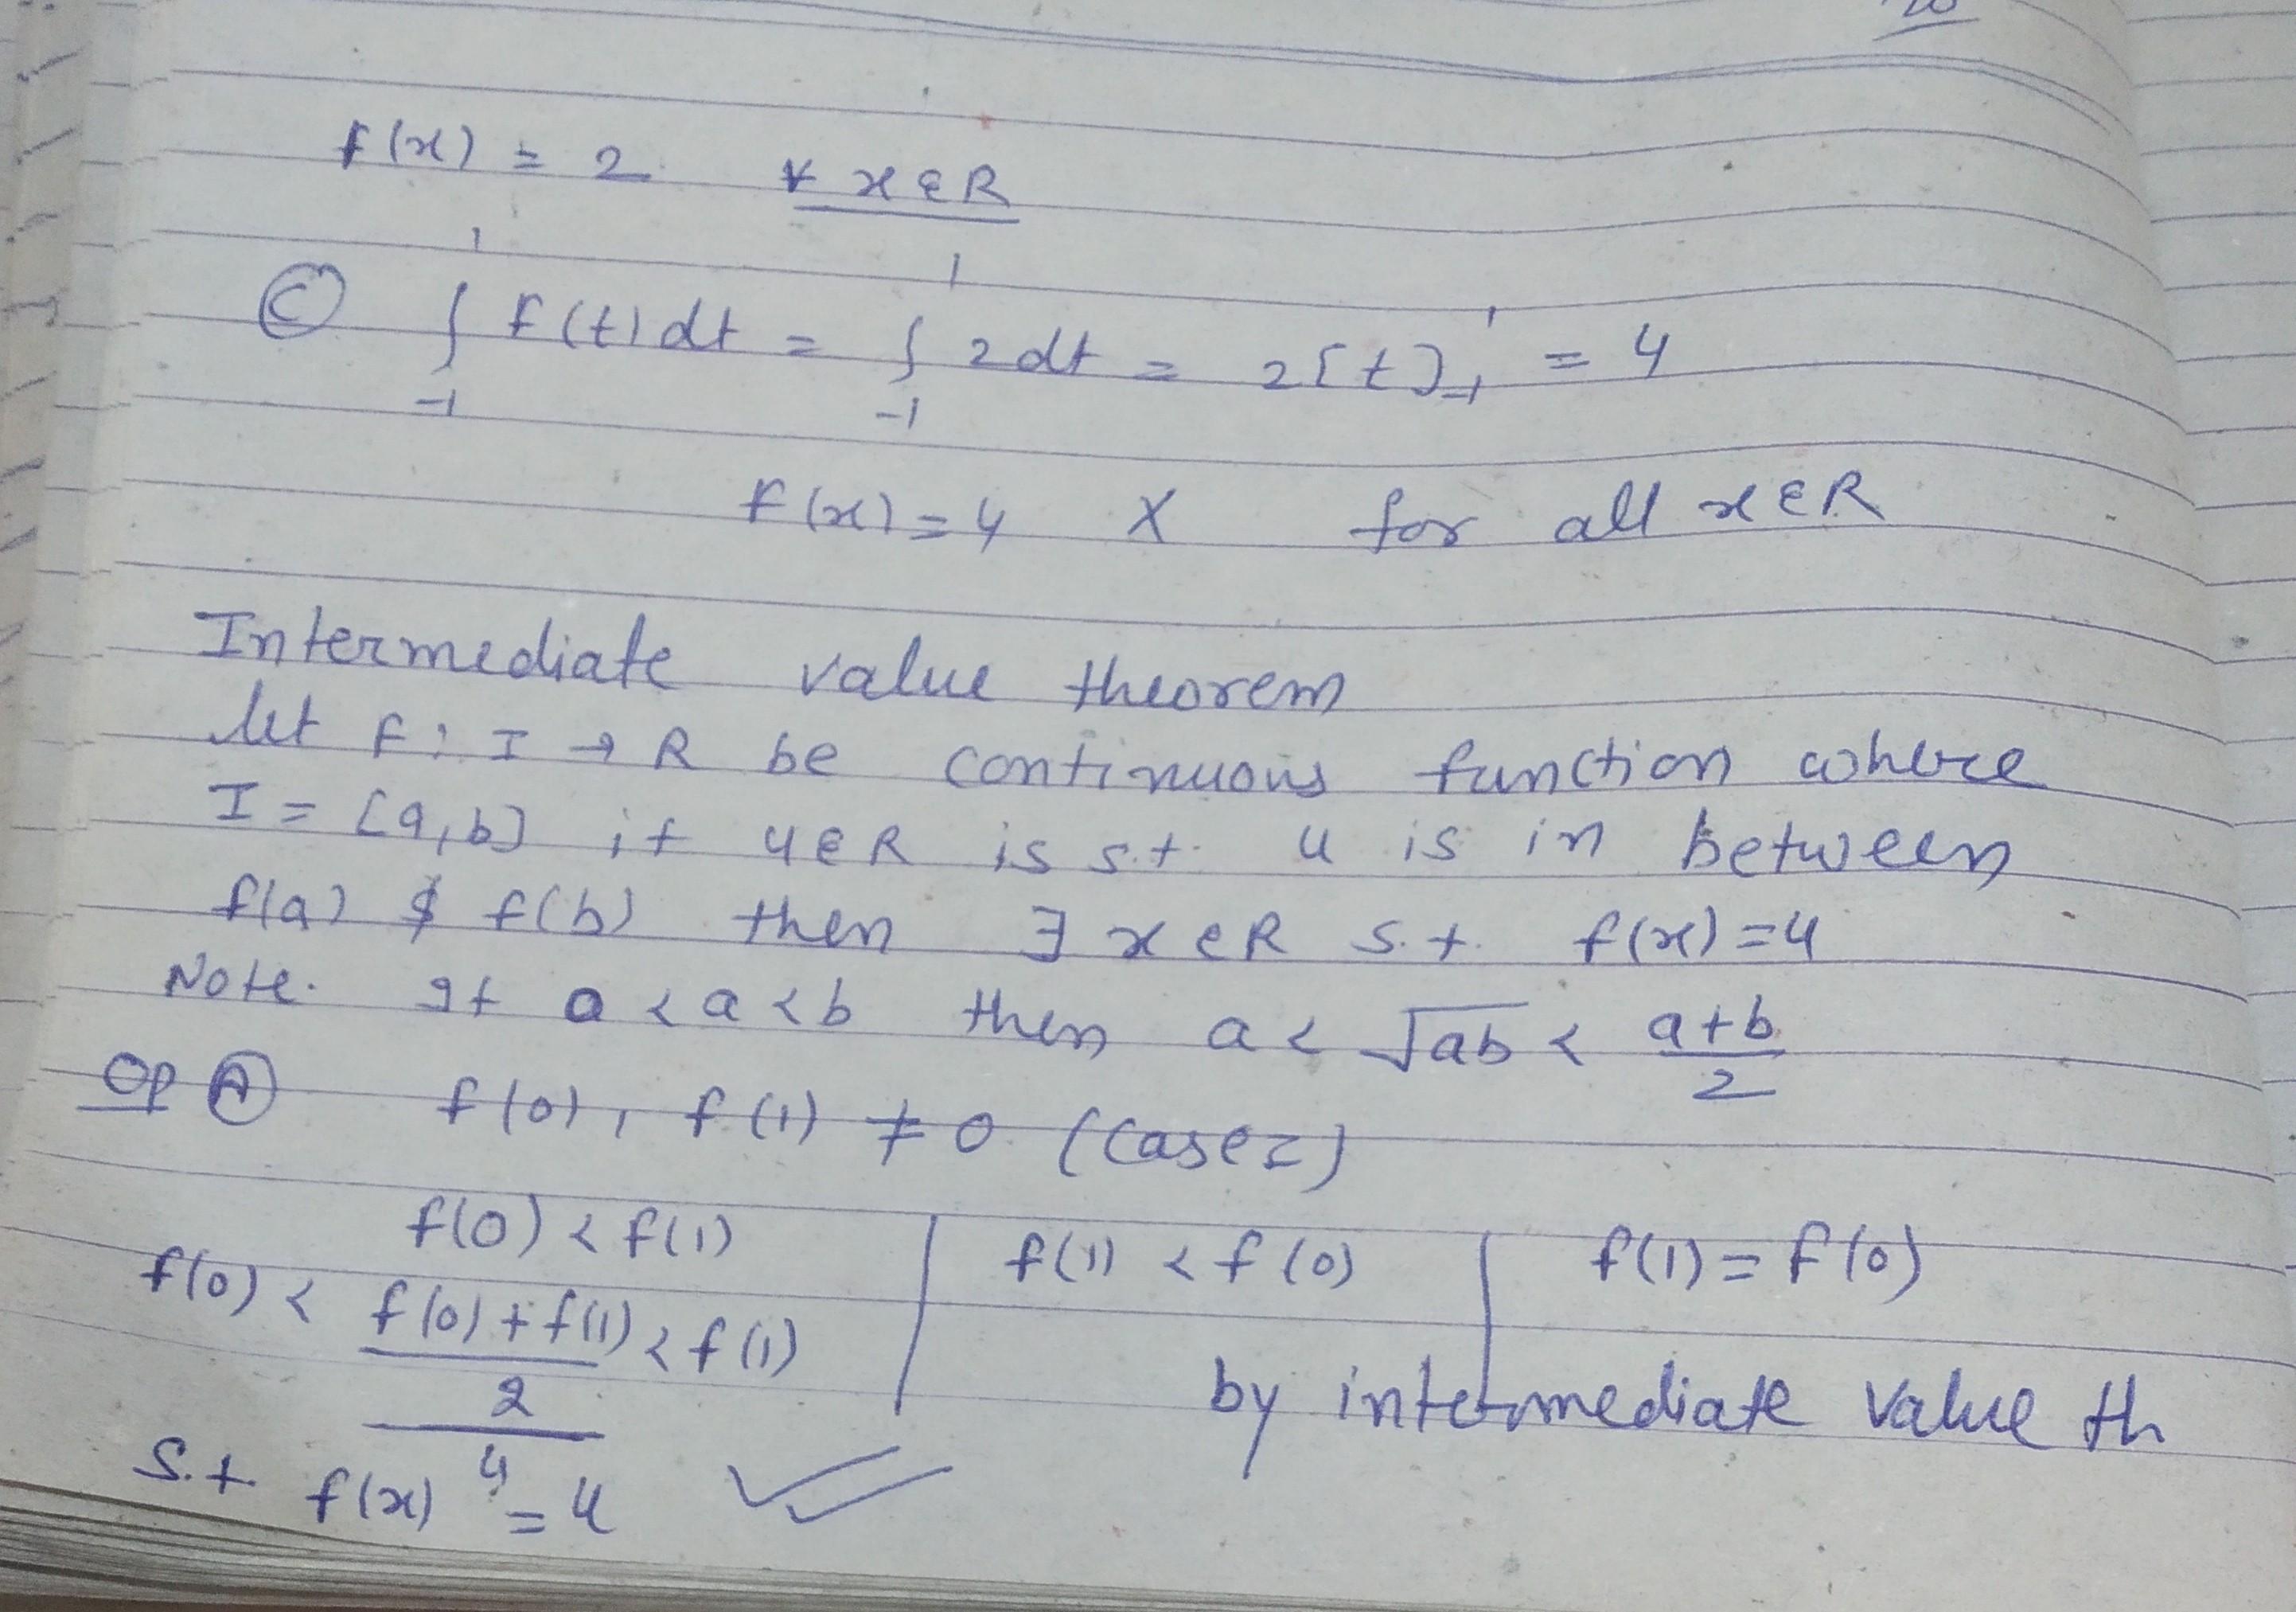 f(x) = 2 ∀ x ∈ R
Ⓒ ∫_{-1}^{1} f(t) dt = ∫_{-1}^{1} 2 dt = 2[t]_{-1}^{1} = 4
f(x) = 4 X for all x ∈ R
Intermediate value theorem
let f : I → R be continuous function where
I = [a,b] if u ∈ R is s.t. u is in between
f(a) & f(b) then ∃ x ∈ R s.t. f(x) = u
Note. If 0 < a < b then a < √ab < (a+b)/2
Op Ⓐ f(0), f(1) ≠ 0 (Case I)
f(0) < f(1) | f(1) < f(0) | f(1) = f(0)
f(0) < (f(0) + f(1))/2 < f(1)
by intermediate value th
u
s.t f(x) = u ✓✓